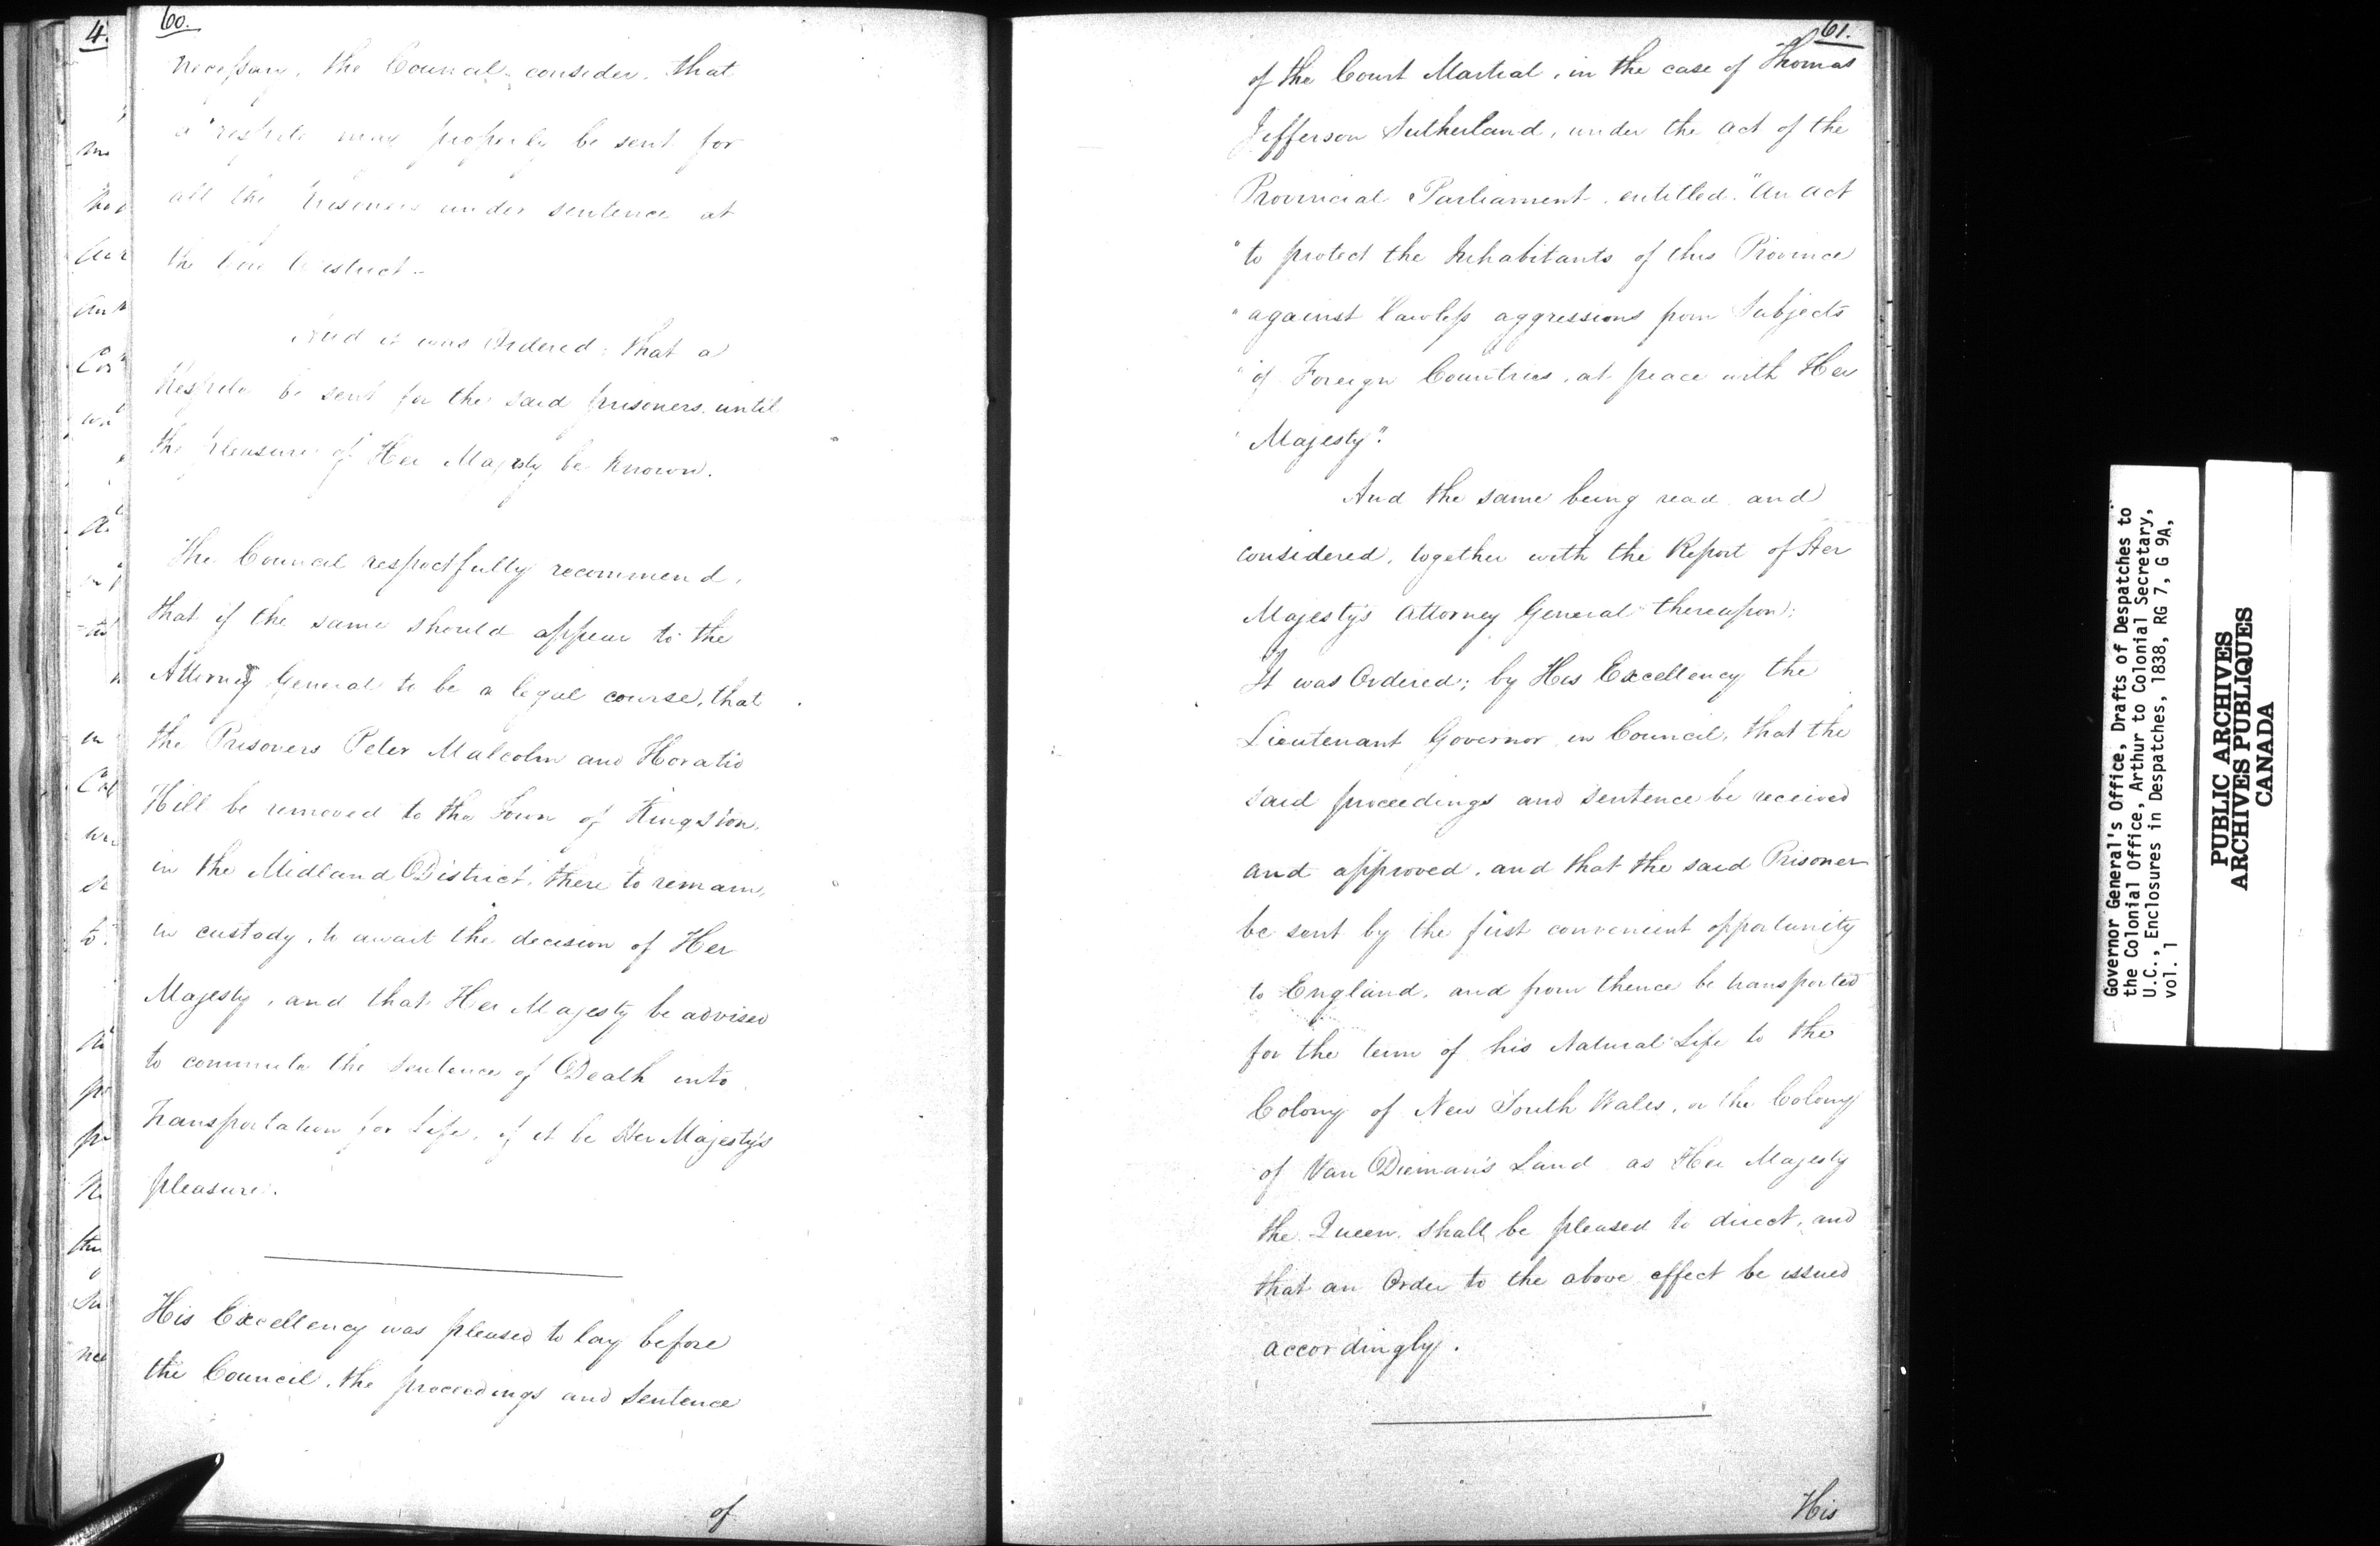 60.
necessary, the Council consider, that
a respite may properly be sent for
all the Prisoners under sentence at
the District.
And it was Ordered; that a
Respite be sent for the said prisoners, until
the pleasure of Her Majesty be known.
The Council respectfully recommend,
that if the same should appear to the
Attorney General to be a legal course, that
the Prisoners Peter Malcolm and Horatio
Hill be removed to the Town of Kingston,
in the Midland District, there to remain,
in custody, to await the decision of Her
Majesty, and that Her Majesty be advised
to commute the Sentence of Death into
Transportation for Life, if it be Her Majesty's
pleasure.
His Excellency was pleased to lay before
the Council, the proceedings and Sentence
of
61.
of the Court Martial, in the case of Thomas
Jefferson Sutherland, under the act of the
Provincial Parliament, entitled, "An act
"to protect the Inhabitants of this Province
"against Lawless aggressions from Subjects
"of Foreign Countries, at peace with Her
"Majesty".
And the same being read and
considered, together with the Report of Her
Majesty's Attorney General thereupon;
It was Ordered; by His Excellency the
Lieutenant Governor in Council, that the
said proceedings and sentence be received
and approved, and that the said Prisoner
be sent by the first convenient opportunity
to England, and from thence be transported
for the term of his Natural Life to the
Colony of New South Wales, or the Colony
of Van Dieman's Land as Her Majesty
the Queen shall be pleased to direct, and
that an Order to the above effect be issued
accordingly.
His
Governor General's Office, Drafts of Despatches to
the Colonial Office, Arthur to Colonial Secretary,
U.C., Enclosures in Despatches, 1838, RG 7, G 9A,
vol. 1
PUBLIC ARCHIVES
ARCHIVES PUBLIQUES
CANADA